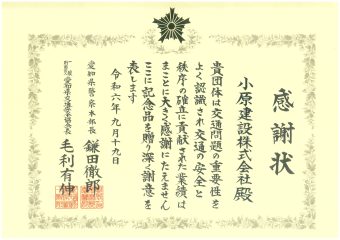 感謝状
小原建設株式会社 殿
貴団体は交通問題の重要性を
よく認識され交通の安全と
秩序の確立に貢献された業績は
まことに大きく感謝にたえません
ここに記念品を贈り深く謝意を
表します
令和六年九月十九日
愛知県警察本部長 鎌田徹郎
愛知県安全運転管理協議会長 毛利有伸